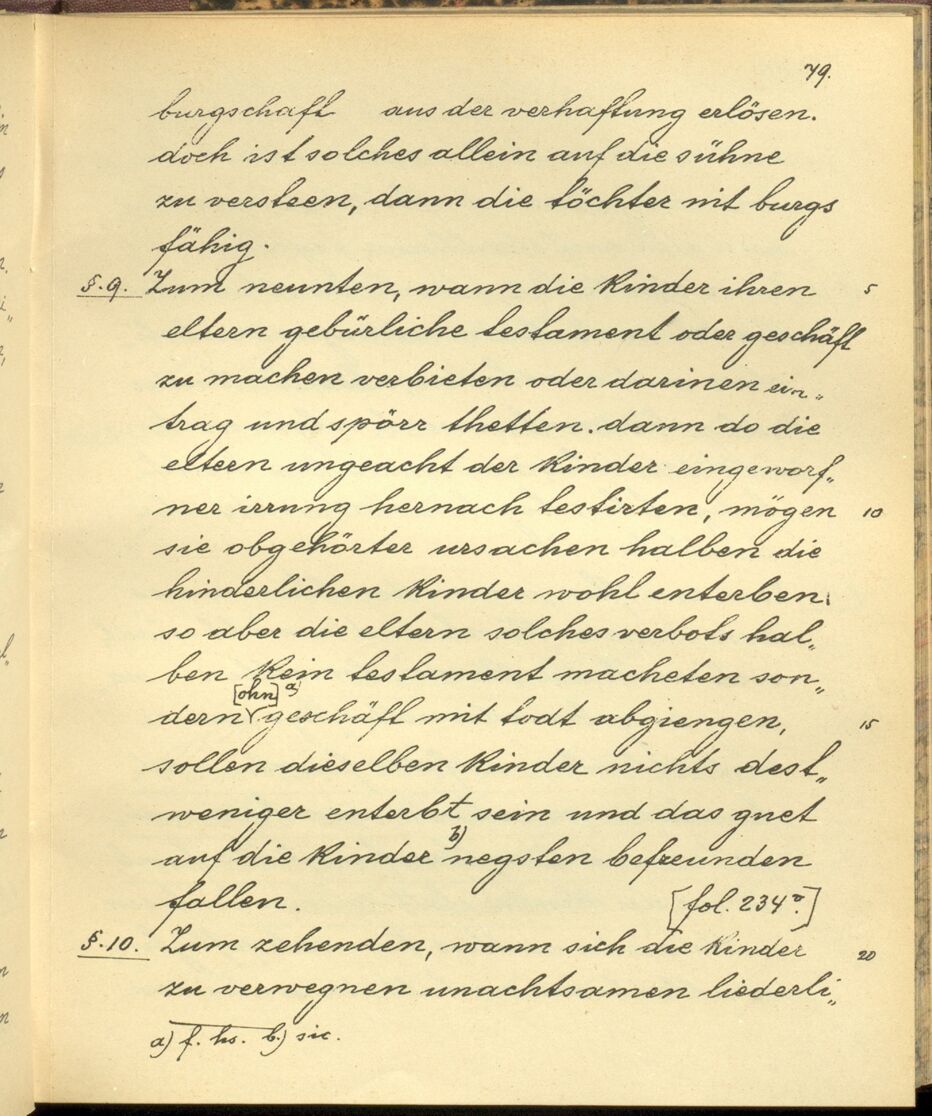 79.
burgschaft aus der verhaftung erlösen.
doch ist solches allein auf die sühne
zu versteen, dann die töchter nit burgs
fähig.
§.9. Zum neunten, wann die kinder ihren 5
eltern gebürliche testament oder geschäft
zu machen verbieten oder darinen ein„
trag und spörr thetten. dann do die
eltern ungeacht der kinder eingeworf„
ner irrung hernach testirten, mögen 10
sie obgehörter ursachen halben die
hinderlichen kinder wohl enterben,
so aber die eltern solches verbots hal„
ben kein testament macheten son„
dern [ohn] a) geschäft mit todt abgiengen, 15
sollen dieselben kinder nichts dest„
weniger enterbt sein und das guet
auf die kinder b) negsten befreunden
fallen. [fol. 234 v.]
§.10. Zum zehenden, wann sich die kinder 20
zu verwegnen unachtsamen liederli„
a) f. hs. b.) sic.